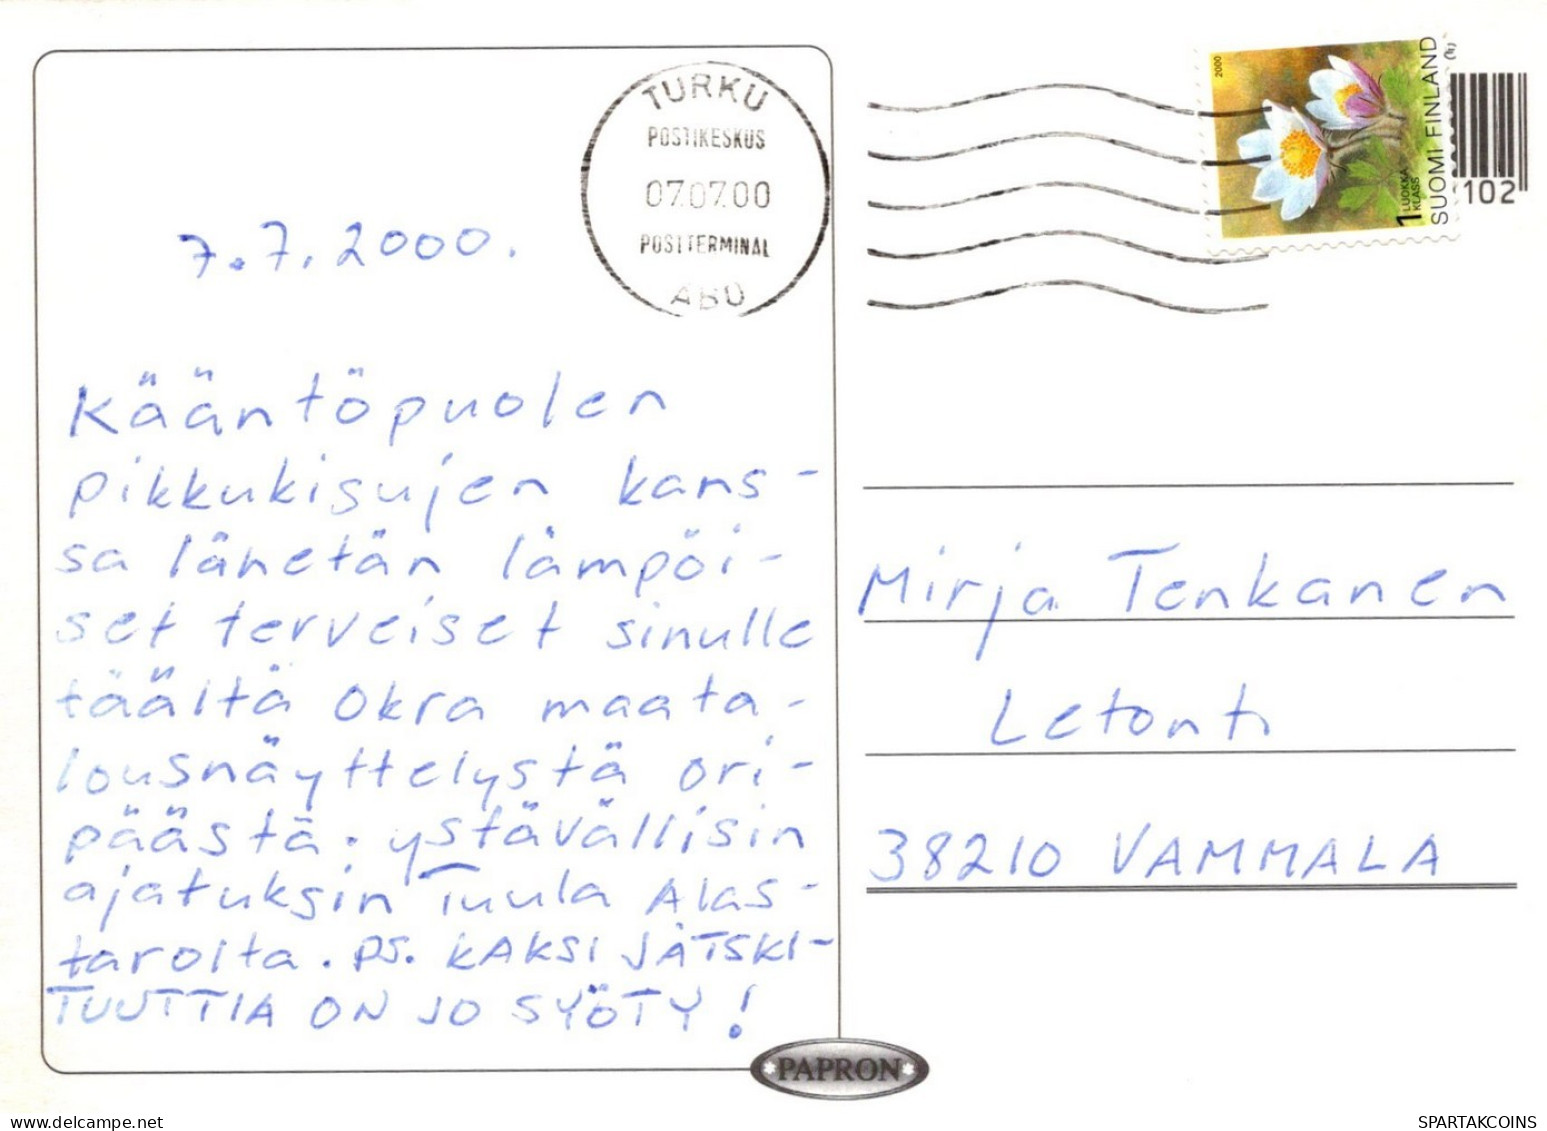 TURKU
POSTIKESKUS
07.07.00
POSTTERMINAL
ÅBO
2000
1 LUOKKA
KLASS
SUOMI FINLAND
102
7.7.2000.
Kääntöpuolen
pikkukisujen kans-
sa lähetän lämpöi-
set terveiset sinulle
täältä Okra maata-
lousnäyttelystä Ori-
päästä. ystävällisin
ajatuksin Tuula Alas-
tarolta. PS. KAKSI JÄTSKI-
TUUTTIA ON JO SYÖTY!
Mirja Tenkanen
Letonti
38210 VAMMALA
PAPRON
SPARTAKCOINS